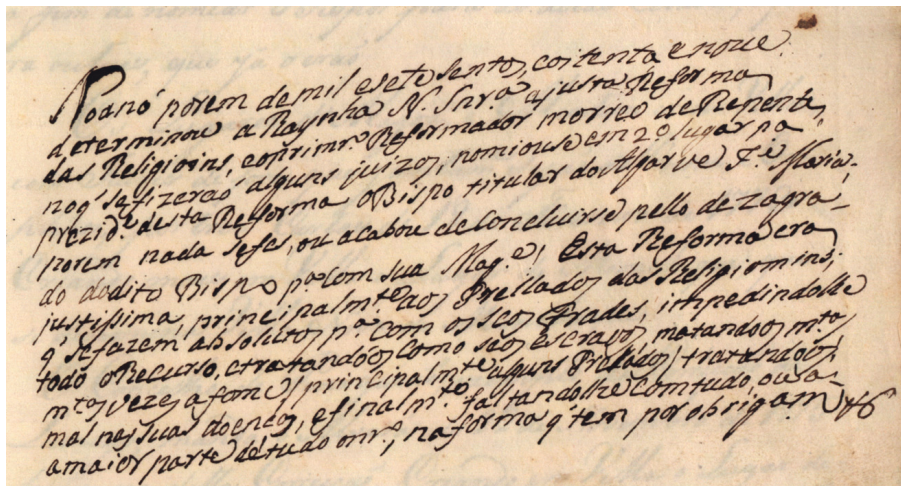 No anó porem de mil e sete sentos, coitenta e noue
determinou a Raynha N. Snr.a ajusta Reforma
das Religioins, e o primr.o Reformador morreo de Repente,
no q se fizeraõ alguns juizos, nomiouse em 2.o lugar pa
prezid.e desta Reforma o Bispo titular do Algarve F.e Maria,
porem nada se fes, ou acabou de Concluirse pello dezagra-
do do dito Bispo p.a com sua Mag.e; Esta Reforma era
justissima, principalm.te aos Prellados das Religioins;
q' se fazem absolutos p.a com os seos Frades, impedindolhe
todo o Recurso, e tratandoos como saõ Escravos, matandoos m.tas
m.tas vezes a fome, principalm.te alguns Prelados, tratandoos
mal nas suas doenças, e finalm.te faltandolhe com tudo, ou a
a maior parte de tudo o nr.o, na forma q' tem por obrigam